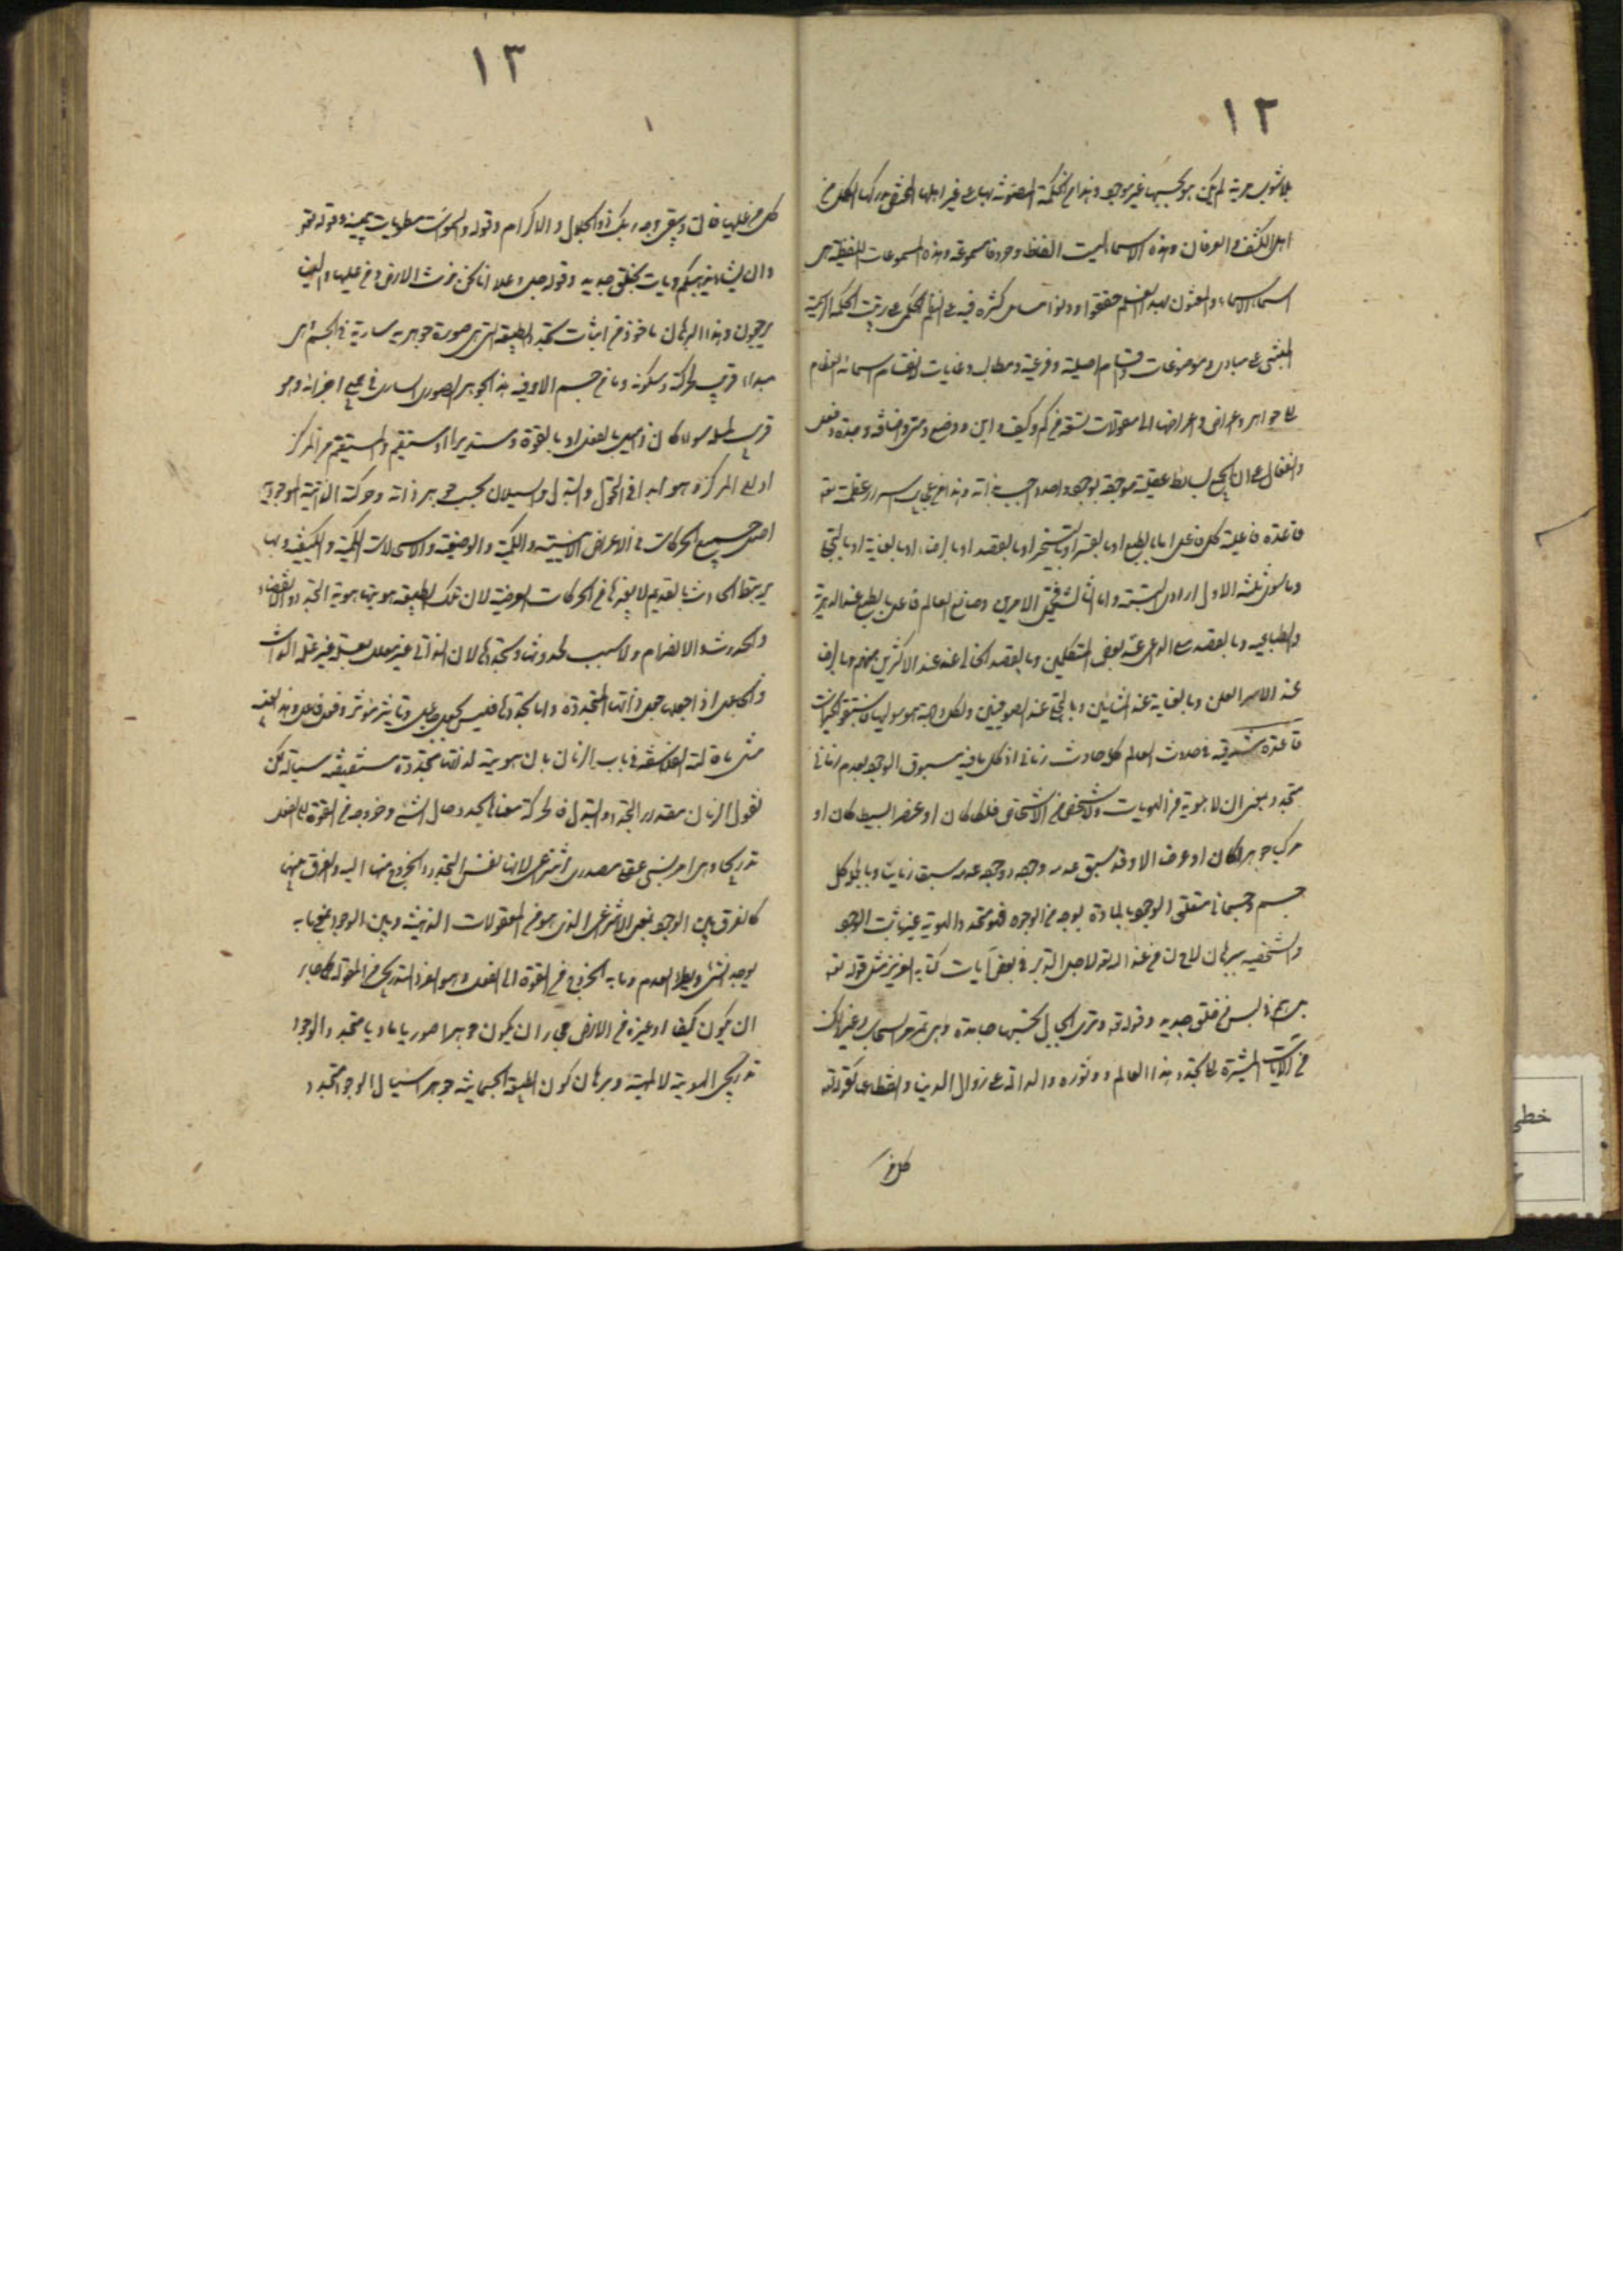 ١٢
بلا شوب حرية لم يكن هو بحسبها غير موجود وهذا من الحكمة المضنونة بها على غير اهلها المختص بدركها الكمل من
اهل الكشف و العرفان وهذه الاسماء ليست الفاظ وحروفا مسموعة وهذه المسموعات اللفظية هي
اسماء الاسماء والمعتنون بهذا العلم حققوا ودونوا مسائل كثيرة فيه على النظم الحكمي على ترتيب الحكمة الرسمية
المبتنى على مبادى وموضوعات واقسام اصلية وفرعية ومطالب وغايات لانقسام اسمائه العظام
الى جواهر واعراض و اعراضها الى مقولات تسعة من كم وكيف و اين و وضع ومتى واضافة وجدة وفعل
وانفعال على ان الجميع بسائط عقلية موجودة بوجود واحد واجب بذاته وهذا من عجايب اسرار عظمته تعه
قاعدة فاعلية كل فاعل اما بالطبع او بالقسر او بالتسخير او بالقصد او بالرضا او بالعناية او بالتجلى
وما سوى ثلثة الاول ارادى البتة واما الثالث فيحتمل الامرين وصانع العالم فاعل بالطبع عند الدهرية
والطباعية وبالقصد مع الداعى عند بعض المتكلمين وبالقصد الخالى عنه عند الاكثرين منهم وبالرضا
عند الاشراقيين وبالعناية عند المشائين وبالتجلى عند الصوفيين ولكل وجهة هو موليها فاستبقوا الخيرات
قاعدة مشرقية في حدوث العالم كله حادث زمانى اذ كل ما فيه مسبوق الوجود بعدم زمانى
متجدد بمعنى ان لا هوية من الهويات ولا شخص من الاشخاص فلكا كان او عنصرا بسيطا كان او
مركبا جوهرا كان او عرضا الا وقد سبق عدمه وجوده ووجوده عدمه سبقا زمانيا وبالجملة كل
جسم وجسمانى متعلق الوجود بالمادة بوجه من الوجوه فهو متجدد الهوية غير ثابت الوجود
والشخصية ببرهان لاح لنا من عند الله لاجل التدبر في بعض آيات كتابه العزيز مثل قوله تعه
بل هم فى لبس من خلق جديد وقوله تعه وترى الجبال تحسبها جامدة وهى تمر مر السحاب وغير ذلك
من الآيات المشيرة الى تجدد هذا العالم ودثوره والدالة على زوال الدنيا وانقطاعها كقوله تعه
كل من
١٣
كل من عليها فان ويبقى وجه ربك ذو الجلال و الاكرام وقوله والسموات مطويات بيمينه وقوله تعه
وان يشأ يذهبكم ويأت بخلق جديد وقوله جل وعلا انا نحن نرث الارض ومن عليها والينا
يرجعون وهذا البرهان ماخوذ من اثبات تجدد الطبيعة التى هى صورة جوهرية سارية في الجسم هى
مبداء قريب لحركته وسكونه وما من جسم الا وفيه هذا الجوهر الصورى السارى في جميع اجزائه وهو
قريب لميله سواء كان ذا ميل بالفعل او بالقوة ومستديرا او مستقيم والمستقيم من المركز
او الى المركز وهو ابدا في التحول والتبدل والسيلان بحسب جوهر ذاته وحركته الذاتية الوجودية
اصل جميع الحركات في الاعراض الاينية والكمية والوضعية والاستحالات الكمية والكيفية وبها
يرتبط الحادث بالقديم لا بغيرها من الحركات العرضية لان تلك الطبيعة هويتها هوية التجدد والانقضاء
والحدوث والانصرام ولا سبب لحدوثها وتجددها لان الذاتى غير معلل بعلة غير علة الذات
والجاعل اذا جعلها جعل ذاتها المتجددة واما تجددها فليس بجعل جاعل وتاثير مؤثر وفعل فاعل وهذا بعينه
مثل ما قالته الفلاسفة في باب الزمان بان هويته لذاتها متجددة منقضية سيالة لكن
نقول الزمان مقدار التجدد والتبدل والحركة معناها تجدد حال الشئ وخروجه من القوة الى الفعل
تدريجا وهى امر نسبى عقلى مصدرى انتزاعى لانها نفس التجدد والخروج منها اليه والفرق بينها
كالفرق بين الوجود بمعنى الانتزاعى الذى هو من المعقولات الذهنية وبين الوجود بمعنى ما به
يوجد الشئ ويطرد العدم وما به الخروج من القوة الى الفعل وهو الفرد التدريجى من المقولة كما جاز
ان يكون كيفا او غيره من الاعراض يجوز ان يكون جوهرا صوريا ماديا متجدد الوجود
تدريجى الهوية لا الماهية وبرهان كون الطبيعة الجسمانية جوهرا سيال الوجود متجدد
خطى